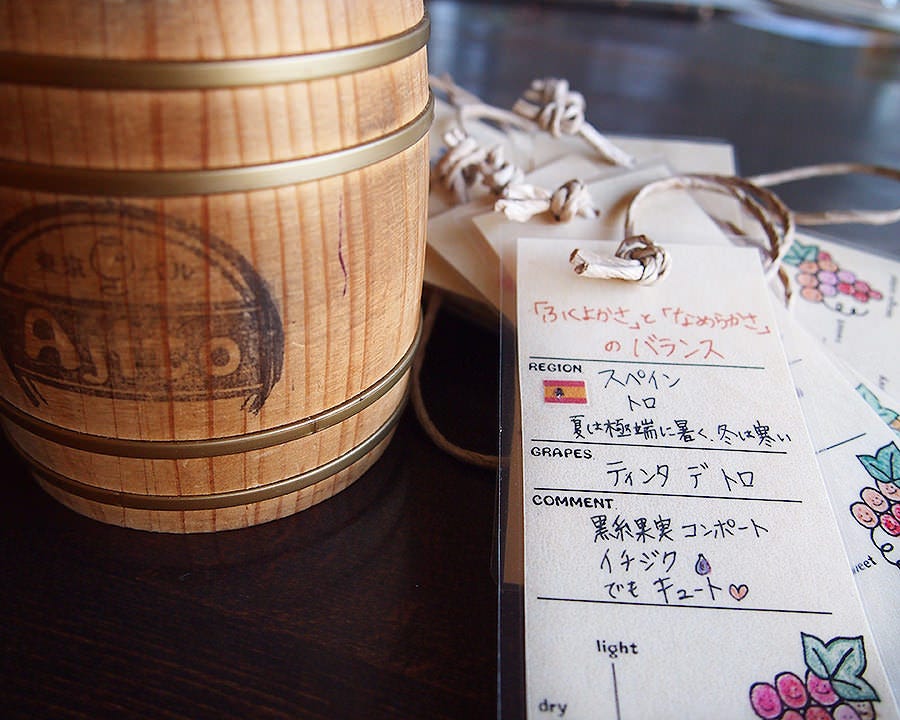 東京
バル
Ajito
「ふくよかさ」と「なめらかさ」
の バランス
REGION スペイン
トロ
夏は極端に暑く、冬は寒い
GRAPES
ティンタ デ トロ
COMMENT
黒系果実 コンポート
イチジク
でも キュート
light
dry